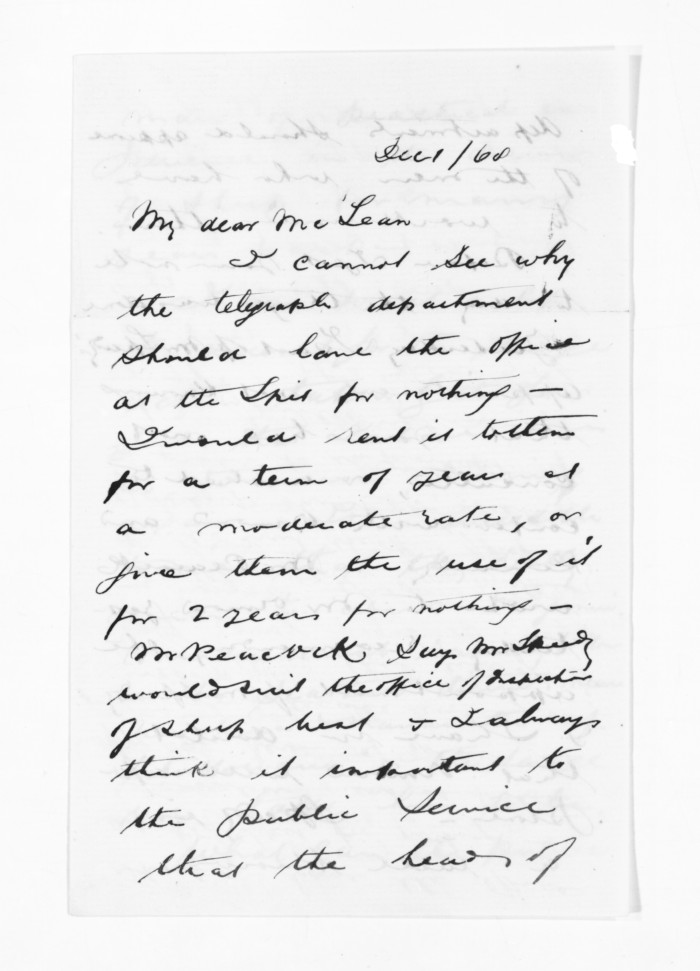 Dec 1/68
My dear McLean
I cannot see why
the telegraph department
should have the office
at the Spit for nothing —
I would rent it to them
for a term of years at
a moderate rate, or
give them the use of it
for 2 years for nothing —
Mr Peacock says Mr
would suit the office of Inspector
of Sheep best & I always
think it important to
the public service
that the heads of